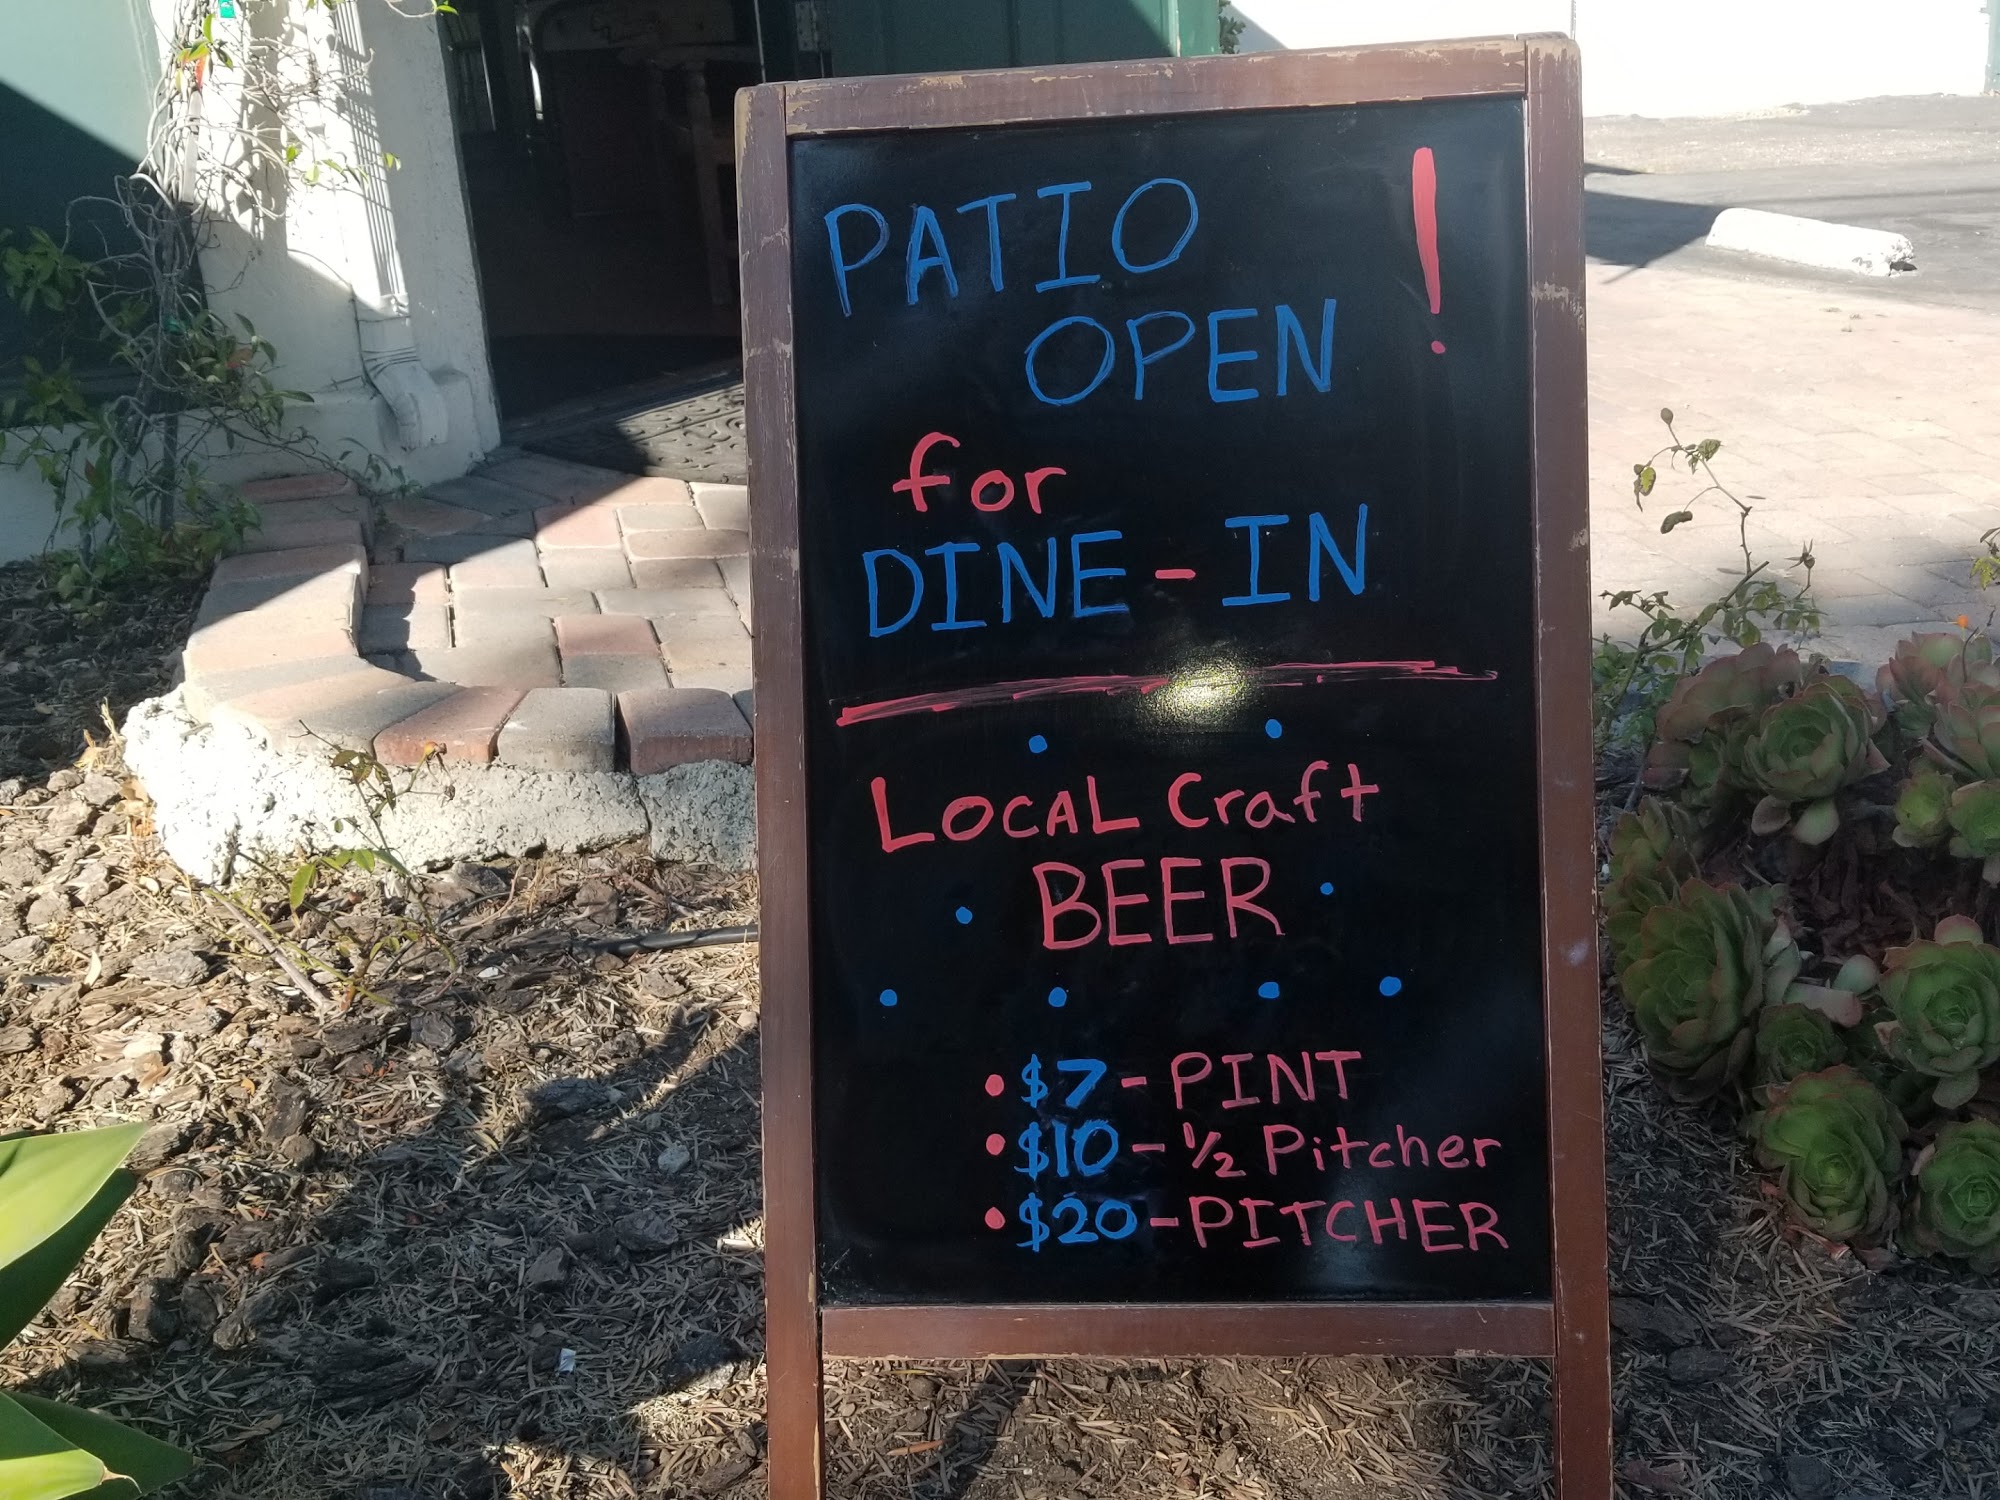 PATIO !
OPEN
for
DINE-IN
LOCAL Craft
BEER
• $7 - PINT
• $10 - ½ Pitcher
• $20 - PITCHER